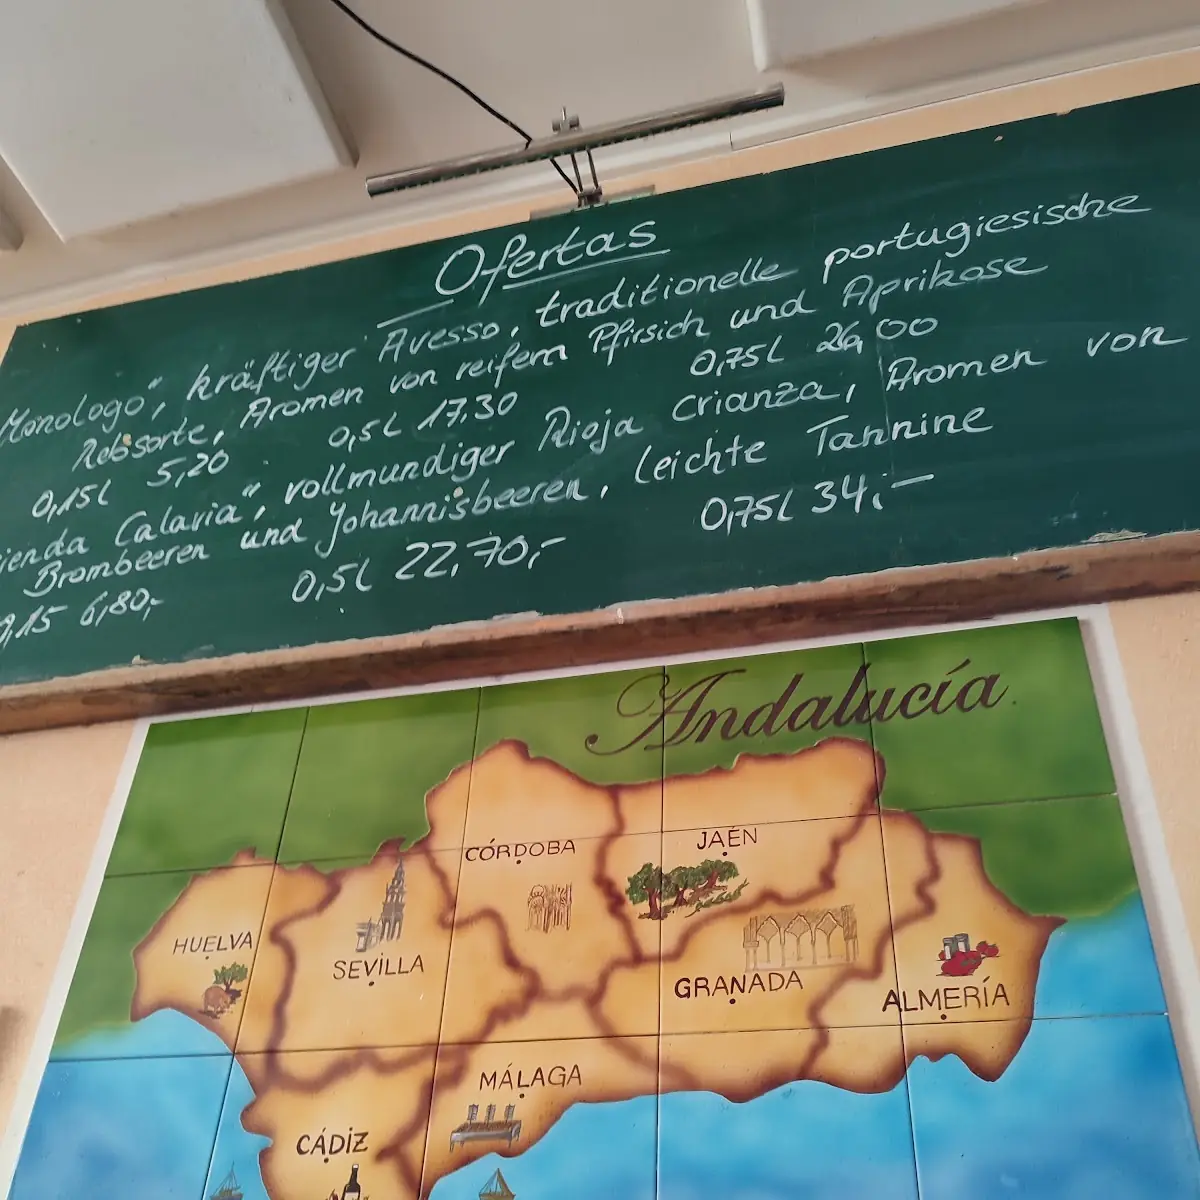 Ofertas
Monologo", kräftiger Avesso, traditionelle portugiesische
Rebsorte, Aromen von reifem Pfirsich und Aprikose
0,15l 5,20 0,5l 17,30 0,75l 26,00
ienda Calavia", vollmundiger Rioja Crianza, Aromen von
Brombeeren und Johannisbeeren, leichte Tannine
0,15 6,80,- 0,5l 22,70,- 0,75l 34,-
Andalucía
CÓRDOBA
JAÉN
HUELVA
SEVILLA
GRANADA
ALMERÍA
MÁLAGA
CÁDIZ